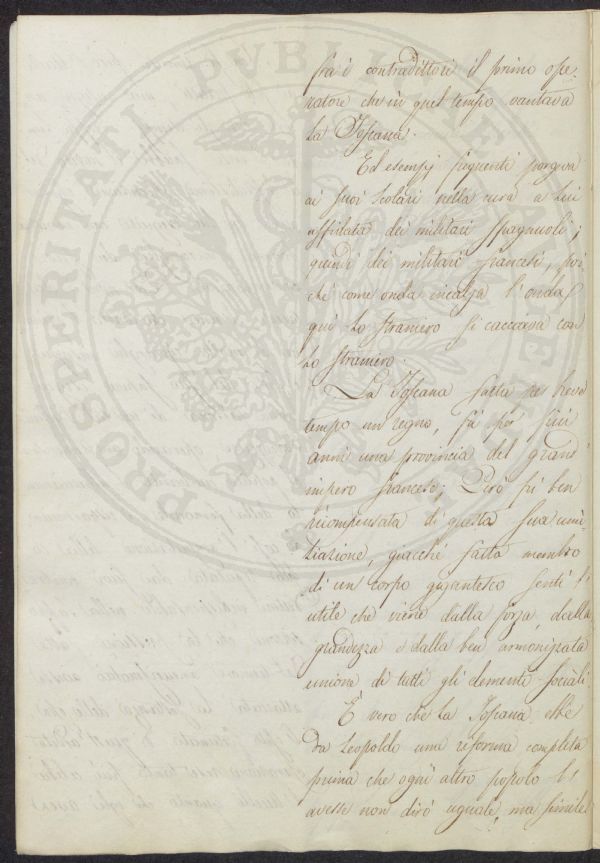 fra i contradittori il primo ope-
ratore che in quel tempo vantava
la Toscana.
Ed esempj seguenti porgeva
ai suoi scolari nella cura a lui
affidata dei militari spagnuoli,
quindi dei militari francesi, poi
chè come onda incalza l'onda,
quì lo straniero si cacciava con
lo straniero.
La Toscana fatta per breve
tempo un regno, fù poi più
anni una provincia del grand'
impero francese; Però fù ben
ricompensata di questa sua umi-
liazione, giacchè fatta membro
di un corpo gigantesco sentì l'
utile che viene dalla forza, dalla
grandezza e dalla ben armonizzata
unione di tutti gli elementi sociali.
È vero che la Toscana ebbe
da Leopoldo una riforma completa
prima che ogni altro popolo l'
avesse non dirò uguale, ma simile.
PROSPERITATI PVBLICAE